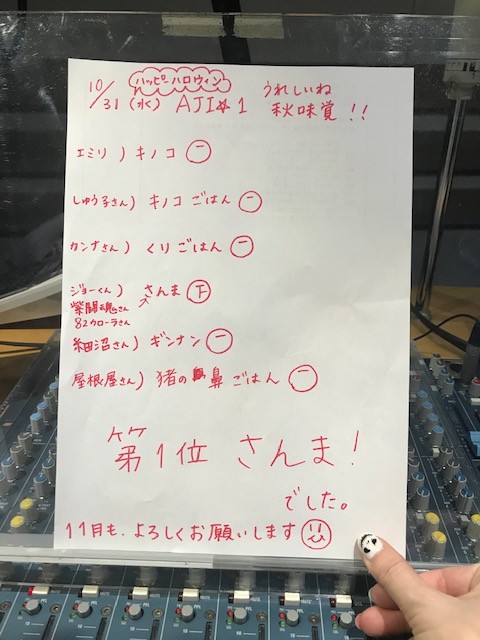 ハッピーハロウィン
10/31 (水) AJI☆1 うれしいね
秋味覚!!
エミリ) キノコ 一
しゅう子さん) キノコ ごはん 一
カンナさん) くり ごはん 一
ジョーくん) さんま 下
紫闘魂さん
82カローラさん
細沼さん) ギンナン 一
屋根屋さん) 猪の鼻 ごはん 一
第1位 さんま!
でした。
11月も、よろしくお願いします